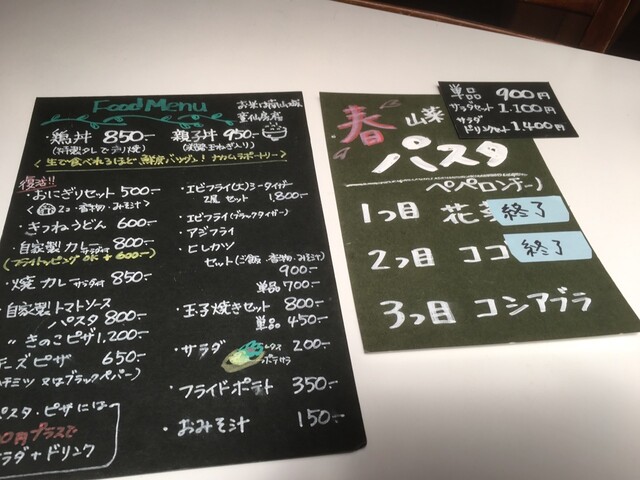 Food Menu
お米は南山城
童仙房産
鶏丼 850-
親子丼 950-
(特製タレでテリ焼)
(淡路玉ねぎ入り)
<生で食べれるほど鮮度バツグン! ナカムラポートリー>
復活!!
・おにぎりセット 500-
2コ・香物・みそ汁
・きつねうどん 600-
・自家製カレー 800-
サラダ付
(フライトッピング OK +600-)
・焼カレー サラダ付 850-
・自家製トマトソース
パスタ 800-
〃 きのこピザ 1,200-
チーズピザ 650-
ハチミツ 又はブラックペパー)
パスタ・ピザには
00円プラスで
サラダ+ドリンク
・エビフライ(大)シータイガー
2尾 セット 1,800-
・エビフライ(ブラックタイガー)
・アジフライ
・ヒレカツ
セット(ご飯・香物・みそ汁)
900-
単品 700-
・玉子焼きセット 800-
単品 450-
・サラダ 200-
レタス
ポテサラ
・フライドポテト 350-
・おみそ汁 150-
単品 900円
サラダセット 1.100円
サラダ
ドリンクセット 1.400円
春 山菜
パスタ
ペペロンチーノ
1つ目 花 終了
2つ目 ココ 終了
3つ目 コシアブラ